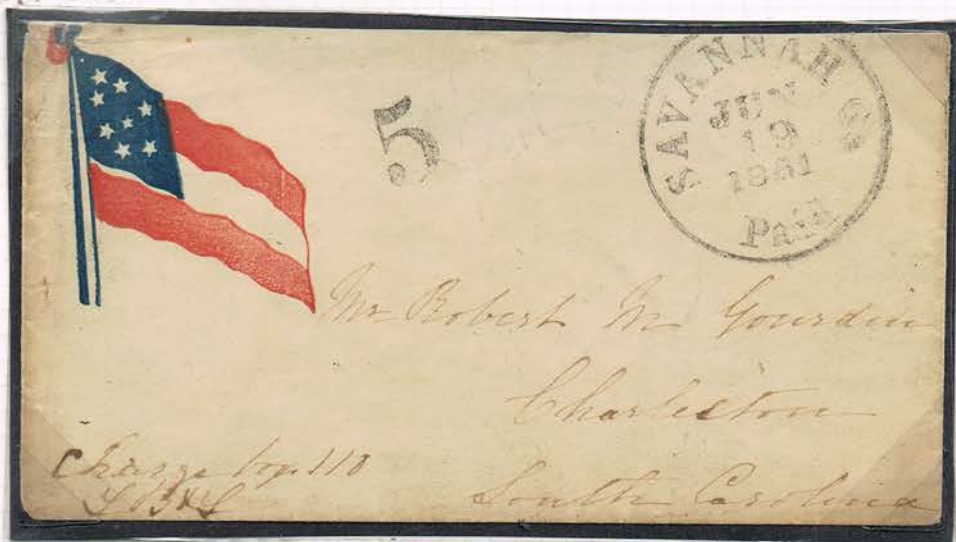 5
SAVANNAH Ga
JUN
19
1861
Paid
Mr Robert N Gourdin
Charleston
South Carolina
Charge box 110